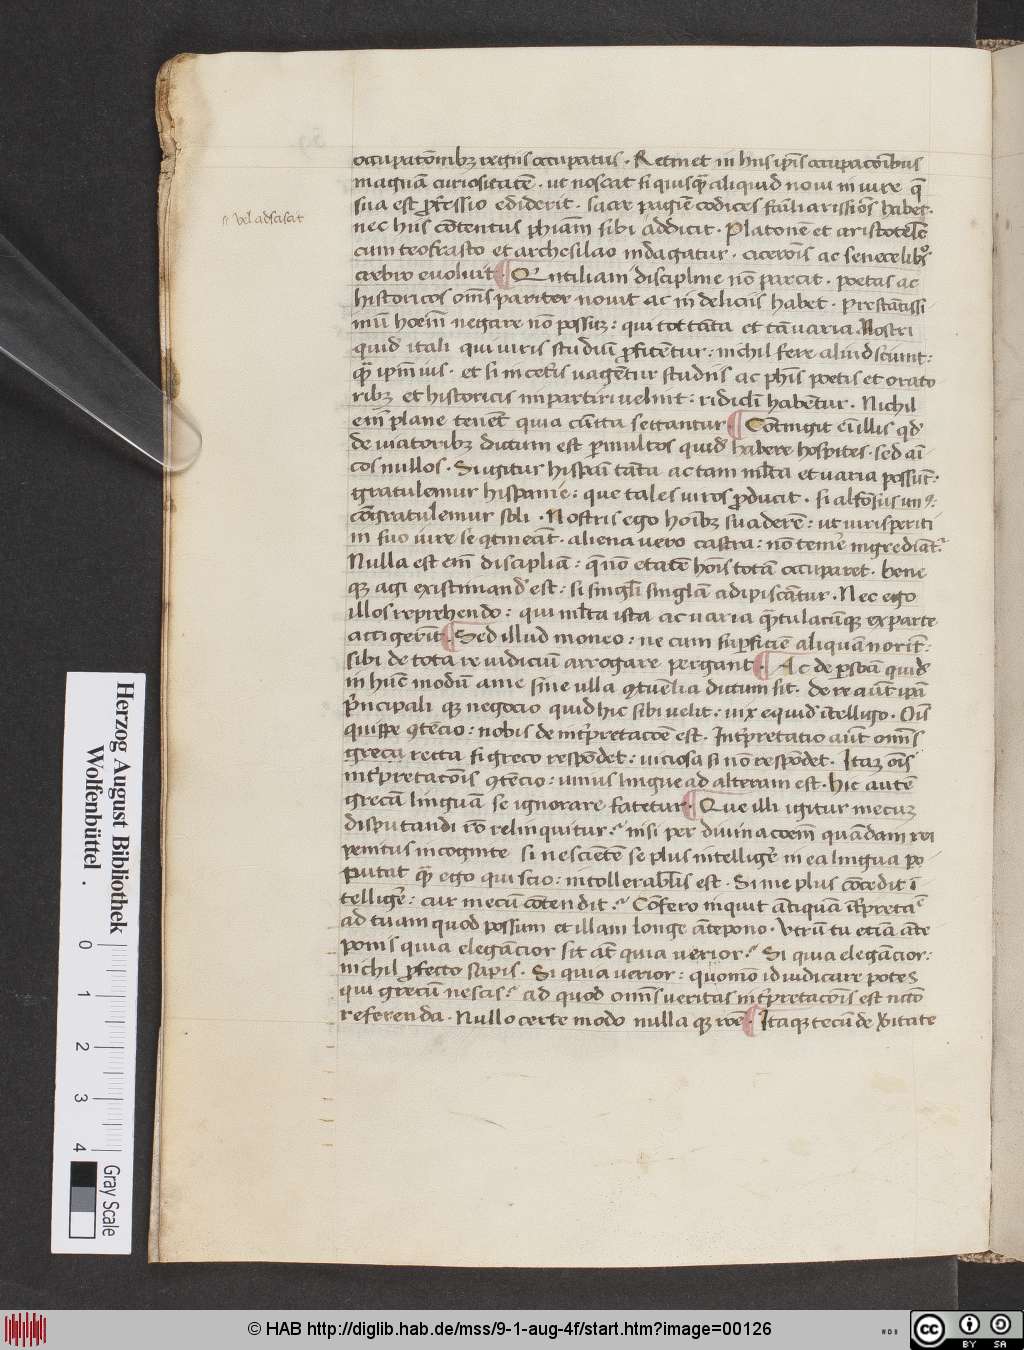 occupatōnibꝫ regiis occupatus · Retinet in hiis ip̄is occupacōibus
magnā curiositatē · ut noscat si quisq̄ aliquid noui in iure q̄
sua est ꝓfessio ediderit · sacre pagīe codices familiarissiōs habet ·
nec hiis cōtentus phiam sibi addicit · Platonē et aristotelē
cum teofrasto et archesilao indagatur · ciceroīs ac senece libꝝ
crebro euoluit · Quintiliani discipline nō parcit · poetas ac
historicos om̄s pariter nouit ac in deliciis habet · Prestātissi
mū hoēm negare nō possūꝫ : qui tot tāta et tā uaria Nostri
quid itali qui iuris studiū ꝓfitētur : nichil fere aliud sciunt :
q̄ ip̄m ius · et si in cetis uagētur studiis ac phīs poetis et orato
ribꝫ et historicis impartiri uelint : ridicli habētur · Nichil
em̄ plane tenēt quia cūcta sectantur · Cōtingit eī illis qd̄
de uiatoribꝫ dictum est ꝑmultos quid habere hospites · sed ai
cos nullos · Si igitur hispāi tāta ac tam ml̄ta et uaria possūt ·
gratulemur hispanie : que tales uiros ꝓducit · si alfōsus un9 :
cōgratulemur soli · Nostris ego hoībꝫ suaderē : ut iuris periti
in suo iure se ꝯtineāt · aliena uero castra : nō temē ingrediāt̄ ·
Nulla est em̄ disciplīa : q̄ nō etatē hoīs totā occuparet · bene
qꝫ agi existimand̄ est : si singl̄i singlās adipiscātur · Nec ego
illos reprehendo : qui ml̄ta ista ac uaria q̄tulacūqꝫ ex parte
attigerīt · Sed illud moneo : ne cum suꝑficiē aliquā norīt :
sibi de tota re iudiciū arrogare pergant · Ac de ꝑsōa quid̄
in hūc modū a me sine ulla ꝯtuēlia dictum sit · de re aūt ipā
p̄ncipali qꝫ negocio quid hic sibi uelit : uix equid̄ ītelligo · Oīs
quippe ꝯtēcio : nobis de int̄pretacōe est · Int̄pretatio aūt om̄is
greca recta si greco respōdet : uiciosa si nō respōdet · Itaꝫ oīs
int̄pretacōis ꝯtēcio : unius lingue ad alteram est · hic autē
grecā linguā se ignorare fatetur · Que illi igitur mecuꝫ
disputandi rō relinquitur ? nisi per diuinacoēm quādam rei
penitus incognite si nescientē se plus intelligē in ea lingua po
putat q̄ ego qui scio : intollerabīlis est · Si me plus cōcedit ī
telligē : cur mecū cōtendit ? Cōfero inquit ātiquā īt̄pretāc̄
ad tuam quod possum et illam longe ātepono · Vtrū tu etiā āte
ponis quia elegācior sit at̄ quia uerior ? Si quia elegācior :
nichil ꝓfecto sapis · Si quia uerior : quōmo id iudicare potes
qui grecū nescis ? ad quod om̄is ueritas int̄pretacōis est nc̄cō
referenda · Nullo certe modo nulla qꝫ rōē · Itaqꝫ tecū de ueritate
vel adscisat
Herzog August Bibliothek
Wolfenbüttel .
0 1 2 3 4
Gray Scale
© HAB http://diglib.hab.de/mss/9-1-aug-4f/start.htm?image=00126
WDB
cc
BY SA